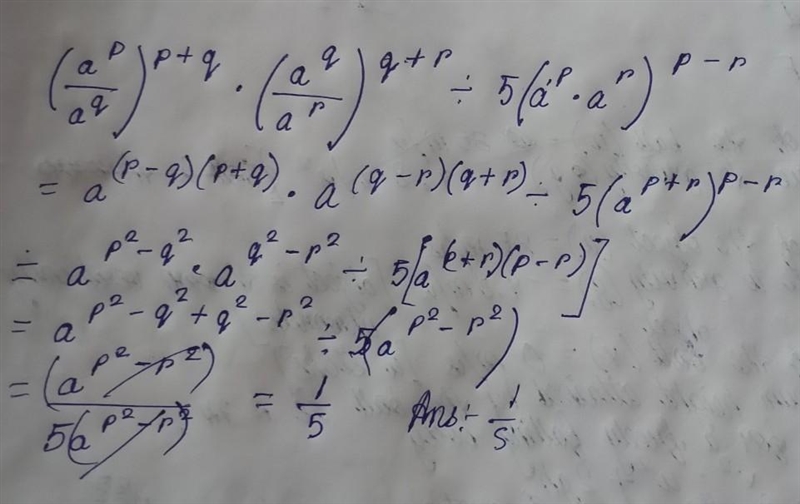 (a^p/a^q)^{p+q} · (a^q/a^r)^{q+r} ÷ 5(a^p · a^r)^{p-r}
= a^{(p-q)(p+q)} · a^{(q-r)(q+r)} ÷ 5(a^{p+r})^{p-r}
= a^{p²-q²} · a^{q²-r²} ÷ 5[a^{(p+r)(p-r)}]
= a^{p²-q²+q²-r²} ÷ 5(a^{p²-r²})
= (a^{p²-r²})/5(a^{p²-r²}) = 1/5 Ans:- 1/5